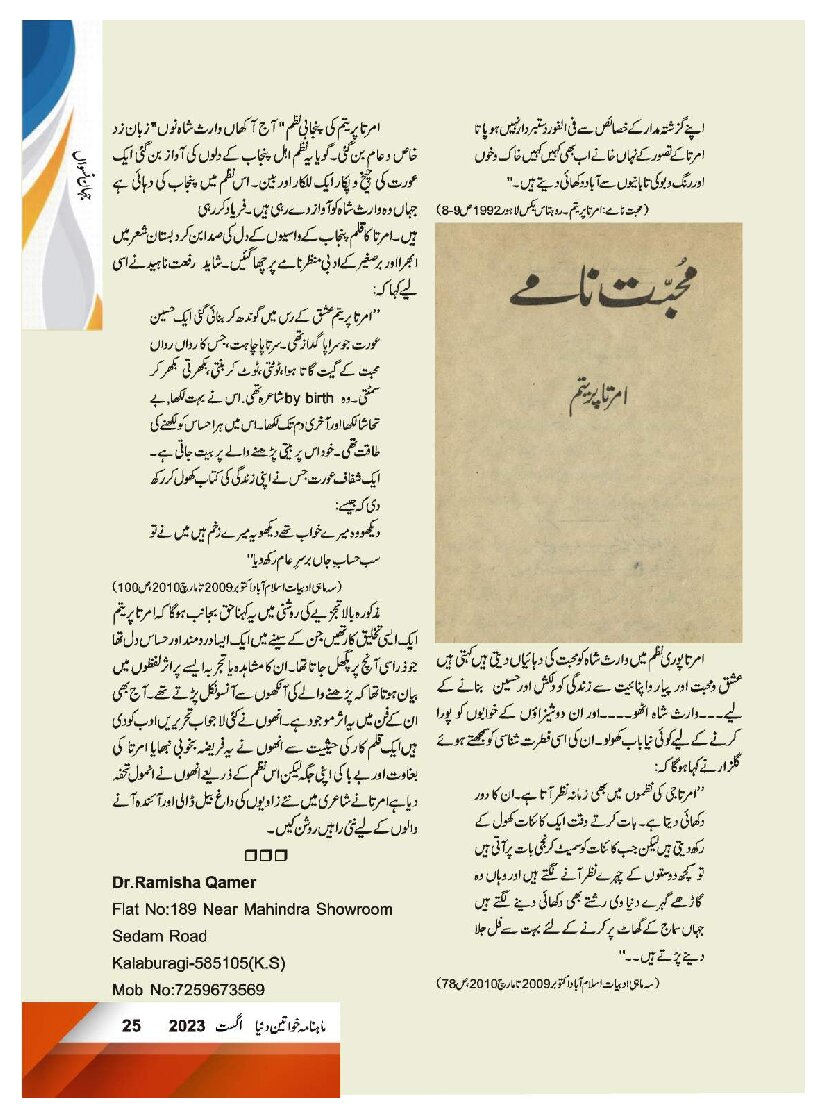 جہانِ نسواں
اپنے گزشتہ مدار کے خصائص سے فی الفور دستبردار نہیں ہو پاتا
امرتا کے تصور کے نہاں خانے اب بھی کہیں کہیں خاک و خوں
اور رنگ و بو کی تابانیوں سے آباد دکھائی دیتے ہیں۔"
(محبت نامے: امرتا پریتم۔ روہتاس بکس لاہور 1992 ص 9-8)
مُحبّت نامے
امرتا پریتم
امرتا پوری نظم میں وارث شاہ کو محبت کی دہائیاں دیتی ہیں کہتی ہیں
عشق و محبت اور پیار و اپنائیت سے زندگی کو دلکش اور حسین بنانے کے
لیے۔۔۔۔وارث شاہ اٹھو۔۔۔۔اور ان دوشیزاؤں کے خوابوں کو پورا
کرنے کے لیے کوئی نیا باب کھولو۔ ان کی اسی فطرت شناسی کو سمجھتے ہوئے
گلزار نے کہا ہوگا کہ:
"امرتا جی کی نظموں میں بھی زمانہ نظر آتا ہے۔ ان کا دور
دکھائی دیتا ہے۔ بات کرتے وقت ایک کائنات کھول کے
رکھ دیتی ہیں لیکن جب کائنات کو سمیٹ کر نجی بات پر آتی ہیں
تو کچھ دوستوں کے چہرے نظر آنے لگتے ہیں اور وہاں وہ
گاڑھے گہرے دنیاوی رشتے بھی دکھائی دینے لگتے ہیں
جہاں سماج کے گھاٹ پر کرنے کے لئے بہت سے فل جلا
دینے پڑتے ہیں۔۔"
(سہ ماہی ادبیات اسلام آباد اکتوبر 2009 تا مارچ 2010، ص 78)
امرتا پریتم کی پنجابی نظم "آج آکھاں وارث شاہ نوں" زبان زد
خاص و عام بن گئی۔ گویا یہ نظم اہل پنجاب کے دلوں کی آواز بن گئی ایک
عورت کی چیخ و پکار ایک للکار اور بین۔ اس نظم میں پنجاب کی دہائی ہے
جہاں وہ وارث شاہ کو آواز دے رہی ہیں۔ فریاد کر رہی
ہیں۔ امرتا کا قلم پنجاب کے واسیوں کے دل کی صدا بن کر دبستان شعر میں
ابھرا اور برصغیر کے ادبی منظر نامے پر چھا گئیں۔ شاید رفعت ناہید نے اسی
لیے کہا کہ:
"امرتا پریتم عشق کے رس میں گوندھ کر بنائی گئی ایک حسین
عورت جو سراپا گداز تھی۔ سرتاپا چاہت، جس کا رواں رواں
محبت کے گیت گاتا ہوا، ٹوٹتی، ٹوٹ کر بنتی، بکھرتی بکھر کر
سمٹتی۔ وہ by birth شاعرہ تھی۔ اس نے بہت لکھا، بے
تحاشا لکھا اور آخری دم تک لکھا۔ اس میں ہر احساس کو لکھنے کی
طاقت تھی۔ خود اس پر بیتی پڑھنے والے پر بیت جاتی ہے۔
ایک شفاف عورت جس نے اپنی زندگی کی کتاب کھول کر رکھ
دی کہ جیسے:
دیکھو وہ میرے خواب تھے دیکھو یہ میرے زخم ہیں میں نے تو
سب حساب جاں برسرِ عام رکھ دیا"
(سہ ماہی ادبیات اسلام آباد اکتوبر 2009 تا مارچ 2010، ص 100)
مذکورہ بالا تجزیے کی روشنی میں یہ کہنا حق بجانب ہوگا کہ امرتا پریتم
ایک ایسی تخلیق کار تھیں جن کے سینے میں ایک ایسا درد مند اور حساس دل تھا
جو ذرا سی آنچ پر پگھل جاتا تھا۔ ان کا مشاہدہ یا تجربہ ایسے پر اثر لفظوں میں
بیان ہوتا تھا کہ پڑھنے والے کی آنکھوں سے آنسو نکل پڑتے تھے۔ آج بھی
ان کے فن میں یہ اثر موجود ہے۔ انھوں نے کئی لا جواب تحریریں ادب کو دی
ہیں ایک قلم کار کی حیثیت سے انھوں نے یہ فریضہ بخوبی نبھایا امرتا کی
بغاوت اور بے باکی اپنی جگہ لیکن اس نظم کے ذریعے انھوں نے انمول تحفہ
دیا ہے امرتا نے شاعری میں نئے زاویوں کی داغ بیل ڈالی اور آئندہ آنے
والوں کے لیے نئی راہیں روشن کیں۔
□□□
Dr.Ramisha Qamer
Flat No:189 Near Mahindra Showroom
Sedam Road
Kalaburagi-585105(K.S)
Mob No:7259673569
ماہنامہ خواتین دنیا اگست 2023 25